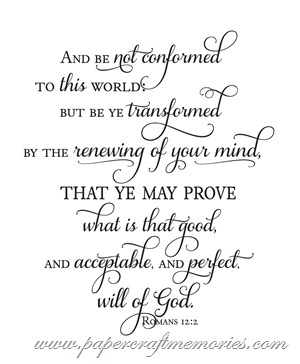 And be not conformed
to this world:
but be ye transformed
by the renewing of your mind,
THAT YE MAY PROVE
what is that good,
and acceptable, and perfect,
will of God.
Romans 12:2
www.papercraftmemories.com